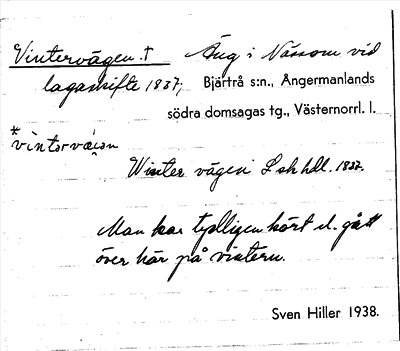 Vintervägen.† Äng i Nässom vid
lagaskifte 1837; Bjärtrå s:n., Ångermanlands
södra domsagas tg., Västernorrl. l.
*vintərvæ̀i̯ən
Winter vägen L sk hdl. 1837.
Man har tydligen kört el. gått
över här på vintern.
Sven Hiller 1938.